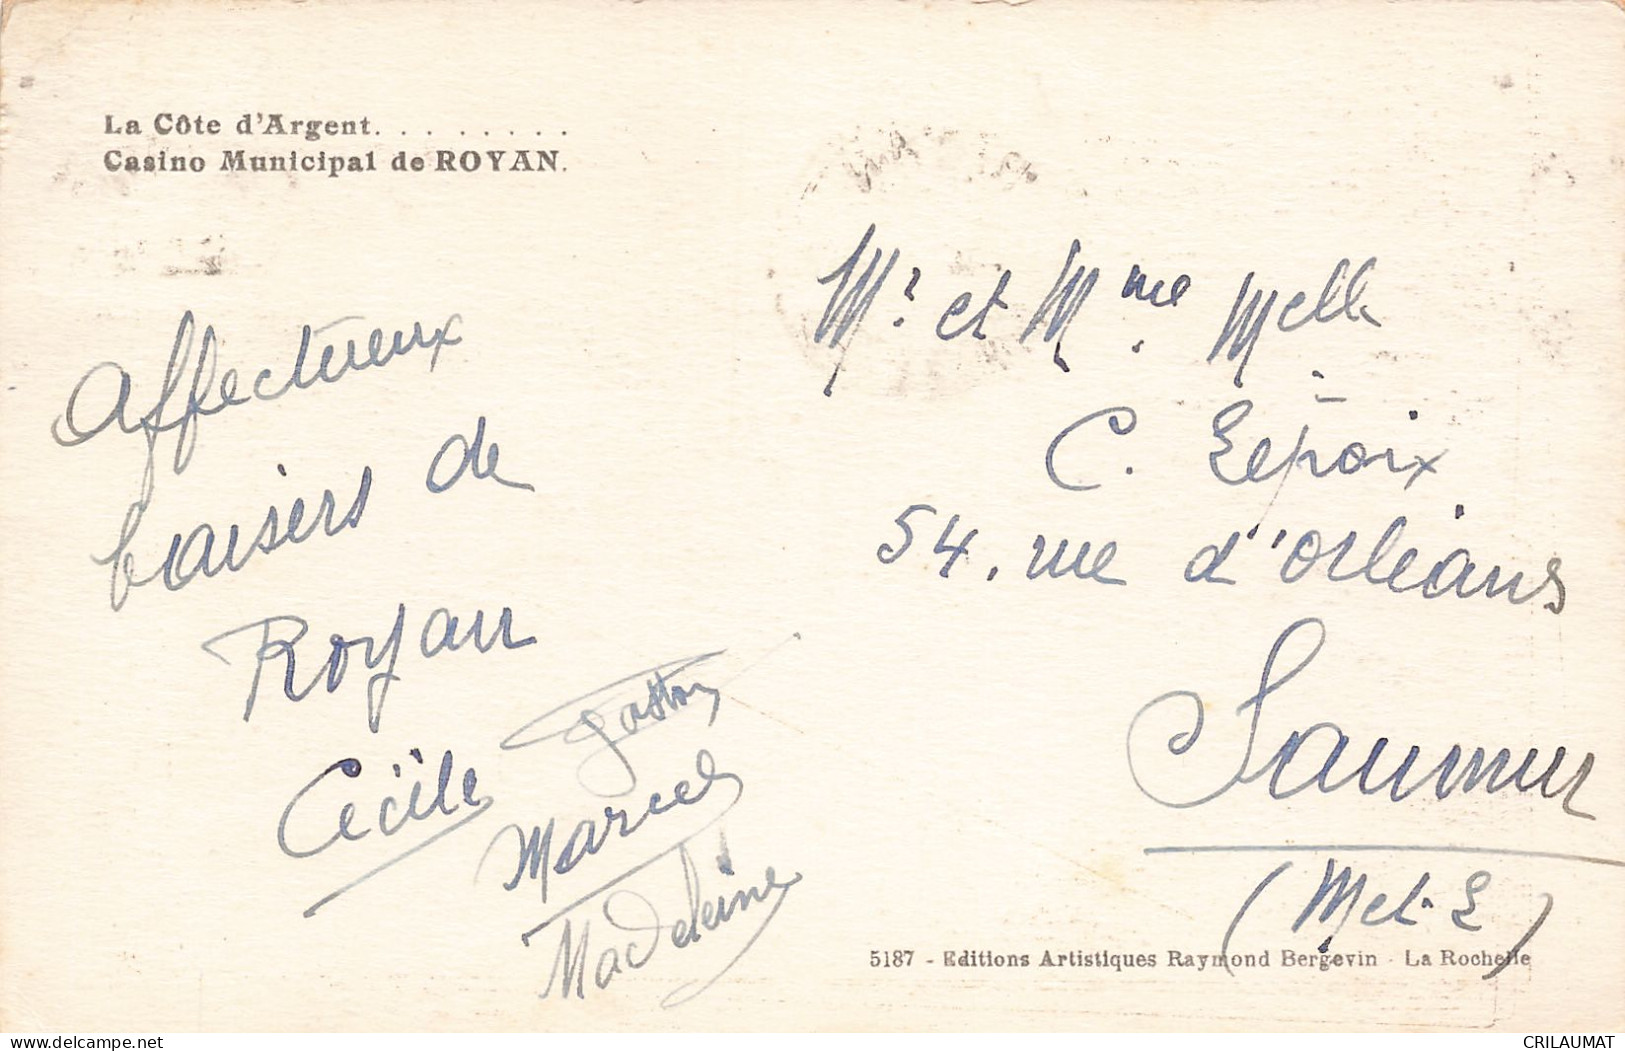 La Côte d'Argent. . . . . . . . .
Casino Municipal de ROYAN.
Affectueux
baisers de
Royan
Cécile
Gaston
Marcel
Madeleine
Mr. et Mme Melle
C. Lepoix
54, rue d'Orléans
Saumur
(M et L)
5187 - Editions Artistiques Raymond Bergevin - La Rochelle
www.delcampe.net
CRILAUMAT